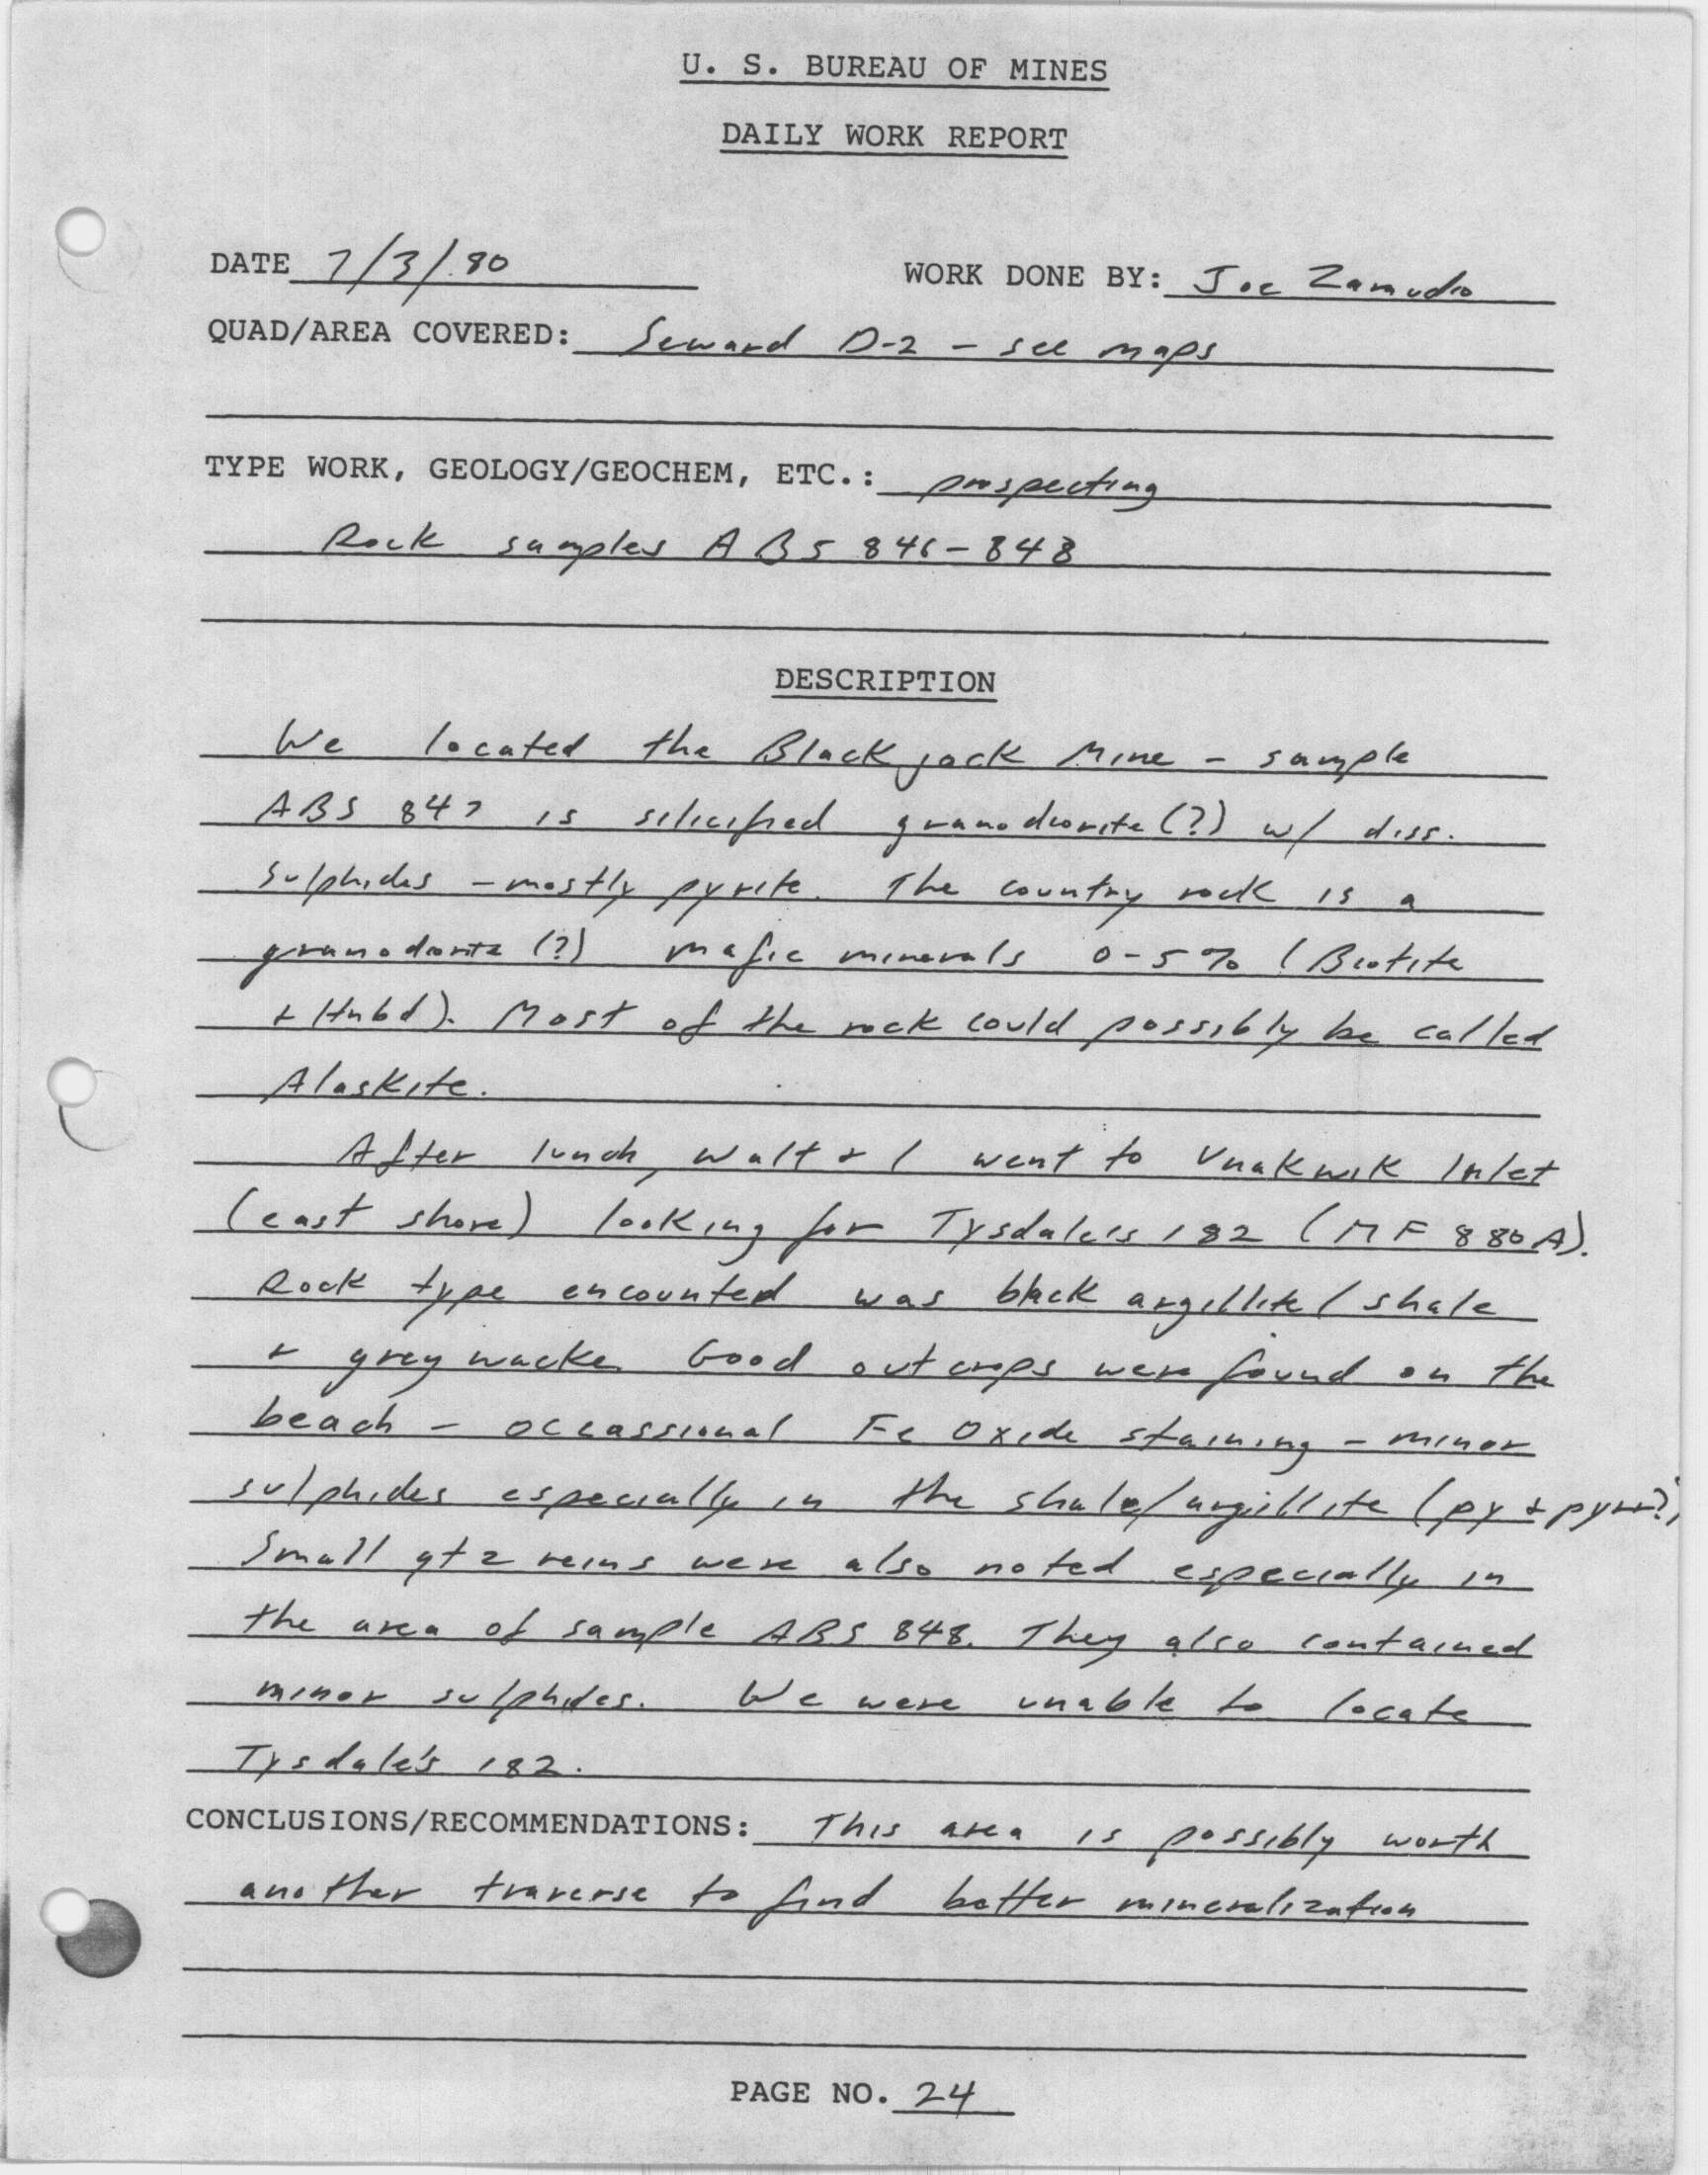 U. S. BUREAU OF MINES
DAILY WORK REPORT
DATE 7/3/80
WORK DONE BY: Joe Zamudio
QUAD/AREA COVERED: Seward D-2 - see maps
TYPE WORK, GEOLOGY/GEOCHEM, ETC.: prospecting
Rock samples ABS 846-848
DESCRIPTION
We located the Blackjack Mine - sample
ABS 847 is silicified granodiorite (?) w/ diss.
sulphides - mostly pyrite. The country rock is a
granodiorite (?) mafic minerals 0-5% (Biotite
+ Hnbd). Most of the rock could possibly be called
Alaskite.
After lunch, Walt + I went to Unakwik Inlet
(east shore) looking for Tysdale's 182 (MF 880A).
Rock type encounted was black argillite/shale
+ greywacke. Good outcrops were found on the
beach - occassional Fe Oxide staining - minor
sulphides especially in the shale/argillite (py + pyrr?)
Small qtz veins were also noted especially in
the area of sample ABS 848. They also contained
minor sulphides. We were unable to locate
Tysdale's 182.
CONCLUSIONS/RECOMMENDATIONS: This area is possibly worth
another traverse to find better mineralization
PAGE NO. 24